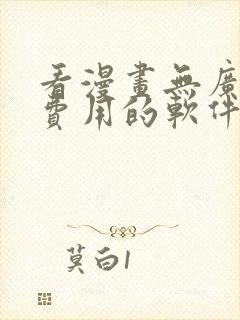 看漫畫無廣
費用的軟件
莫白1